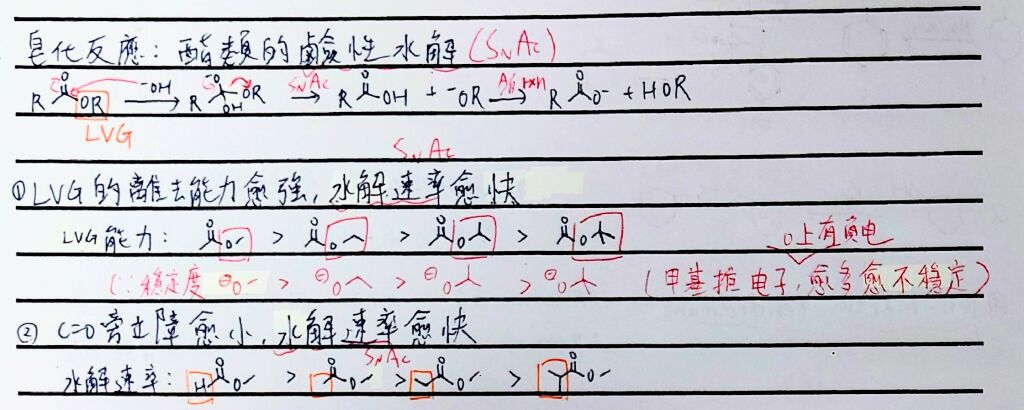 皂化反應：酯類的鹼性水解(SNAc)
R O OR ⁻OH → R O⁻ OR OH SNAc → R O OH + ⁻OR A/B rxn → R O O⁻ + HOR
LVG
SNAc
①LVG的離去能力愈強，水解速率愈快
LVG能力： O O > O O > O O > O O
O上有負电
(∵穩定度 ⊖O > ⊖O > ⊖O > ⊖O (甲基推电子，愈多愈不穩定)
② C=O旁立障愈小，水解速率愈快
SNAc
水解速率： H O O > O O > O O > O O